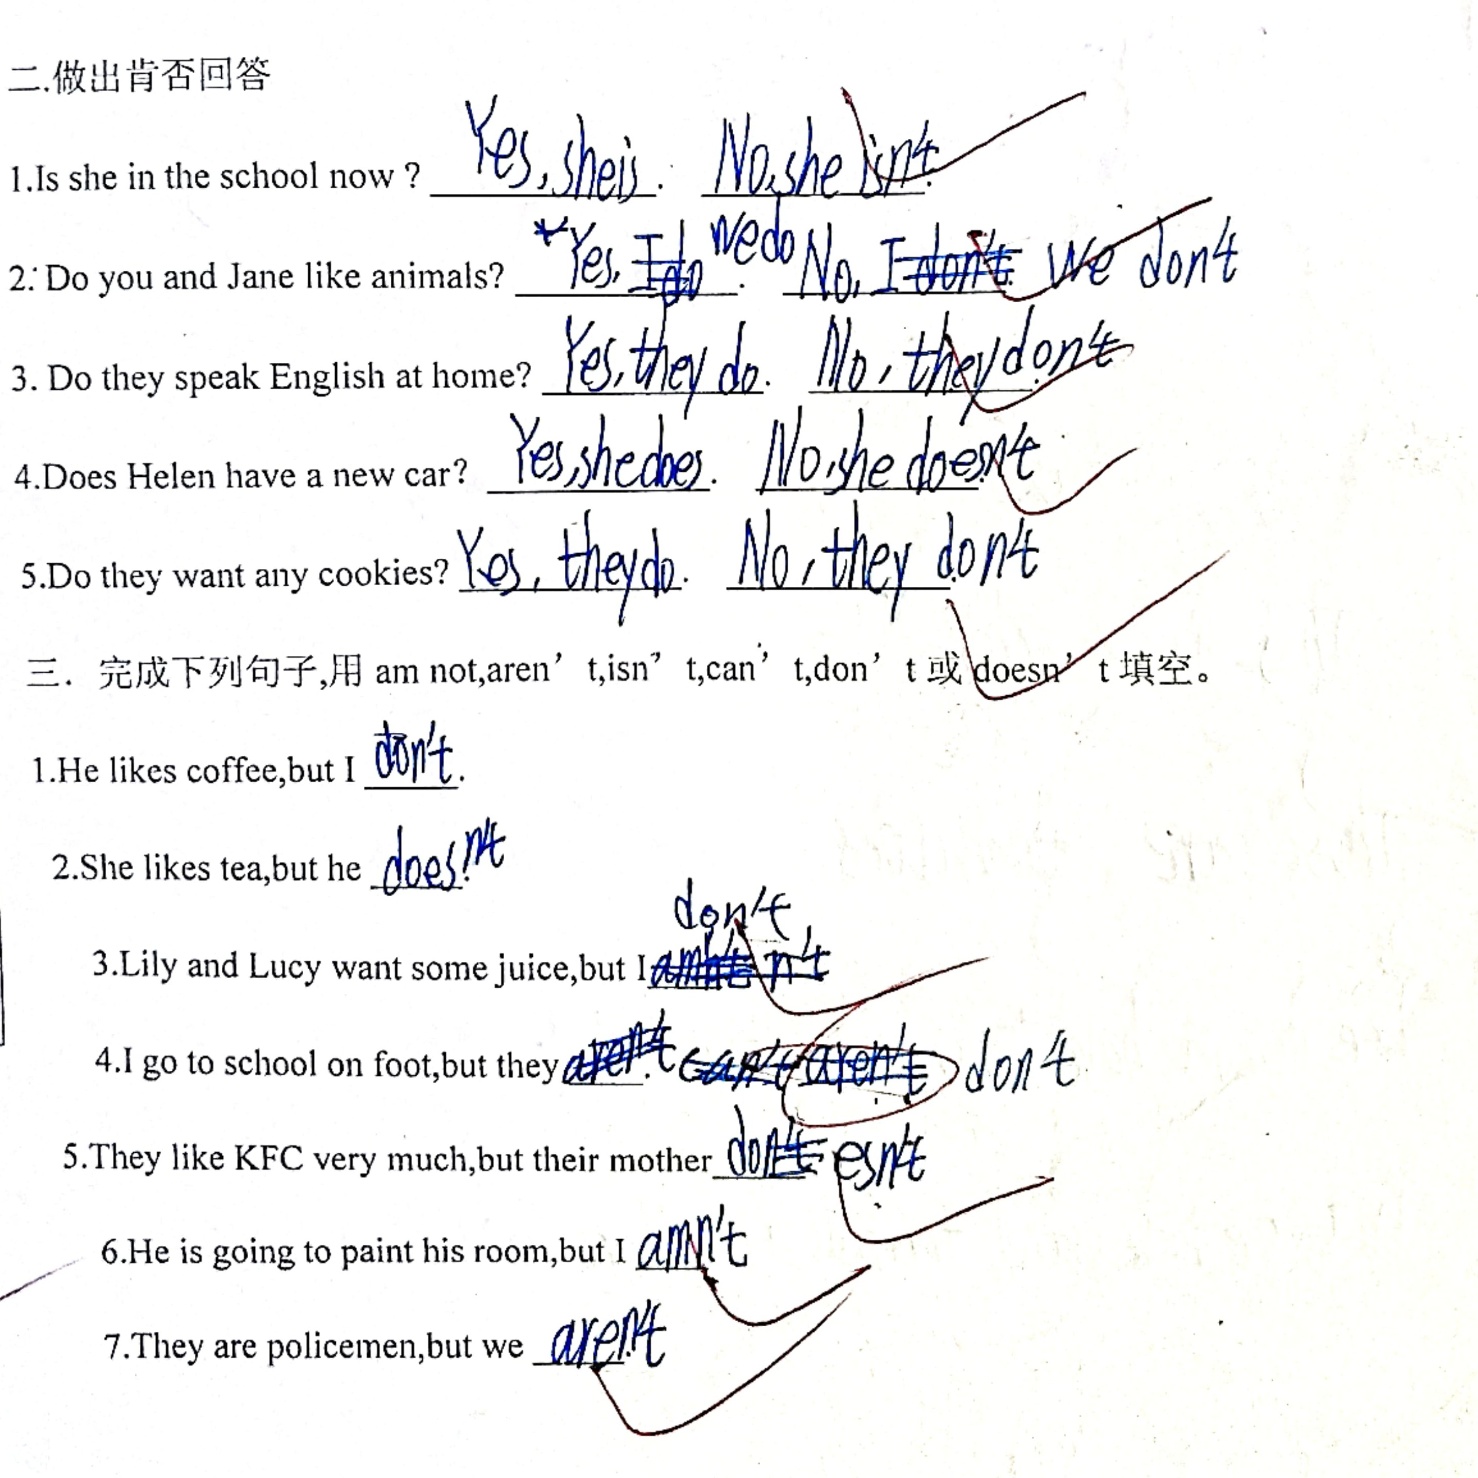 二.做出肯否回答
1.Is she in the school now ? Yes, she is. No, she isn't.
2. Do you and Jane like animals? Yes, I do we do. No, I don't we don't
3. Do they speak English at home? Yes, they do. No, they don't
4.Does Helen have a new car? Yes, she does. No, she doesn't
5.Do they want any cookies? Yes, they do. No, they don't
三. 完成下列句子,用 am not,aren’t,isn”t,can’t,don’t 或 doesn’t 填空。
1.He likes coffee,but I don't.
2.She likes tea,but he does!n't
don't
3.Lily and Lucy want some juice,but I n't
4.I go to school on foot,but they aren't. can't aren't don't
5.They like KFC very much,but their mother don't esn't
6.He is going to paint his room,but I amn't
7.They are policemen,but we aren't